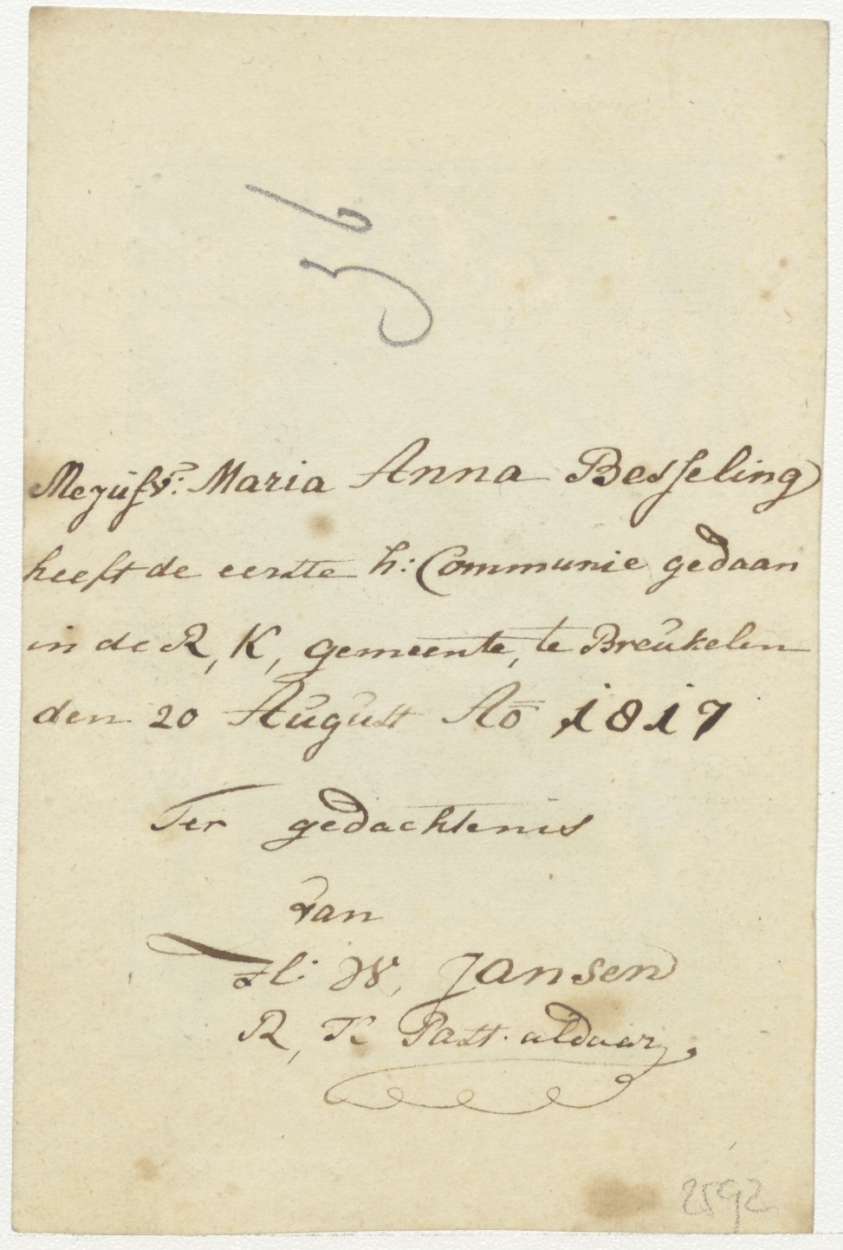 Mejufvr: Maria Anna Besseling
heeft de eerste h: Communie gedaan
in de R, K, gemeente, te Breukelen
den 20 August Ao 1817
Ter gedachtenis
van
H: W, Jansen
R, K Past. alduar,
2592